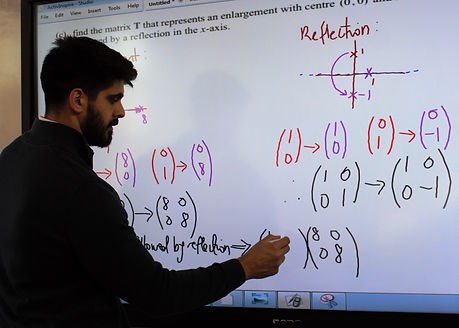 ActivInspire - Studio
File Edit View Insert Tools Help Untitled *
(c) find the matrix T that represents an enlargement with centre (0, 0) and
by a reflection in the x-axis.
Reflection:
1
1
-1
8
(8 0) (0 1) → (0 8)
(1 0) → (1 0) (0 1) → (0 -1)
(1 0 0 1) → (1 0 0 -1)
→ (8 0 0 8)
by reflection ⇒ ( ) (8 0 0 8)